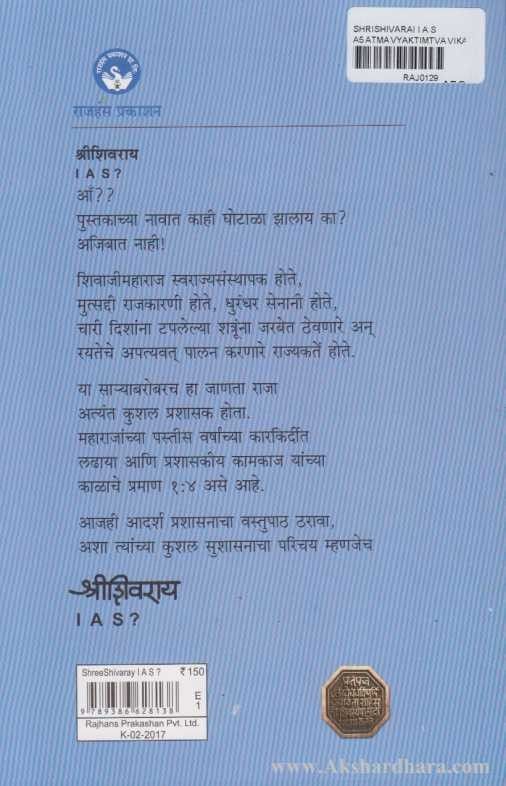 SHRISHIVARAI I A S
ASATMAVYAKTIMTVAVIKA
RAJ0129
राजहंस प्रकाशन
श्रीशिवराय
I A S ?
आँ??
पुस्तकाच्या नावात काही घोटाळा झालाय का?
अजिबात नाही!
शिवाजीमहाराज स्वराज्यसंस्थापक होते,
मुत्सद्दी राजकारणी होते, धुरंधर सेनानी होते,
चारी दिशांना टपलेल्या शत्रूंना जरबेत ठेवणारे अन्
रयतेचे अपत्यवत् पालन करणारे राज्यकर्ते होते.
या साऱ्याबरोबरच हा जाणता राजा
अत्यंत कुशल प्रशासक होता.
महाराजांच्या पस्तीस वर्षांच्या कारकिर्दीत
लढाया आणि प्रशासकीय कामकाज यांच्या
काळाचे प्रमाण १:४ असे आहे.
आजही आदर्श प्रशासनाचा वस्तुपाठ ठरावा,
अशा त्यांच्या कुशल सुशासनाचा परिचय म्हणजेच
श्रीशिवराय
I A S ?
ShreeShivaray I A S ? ₹150
E
1
9 789386 628138
Rajhans Prakashan Pvt. Ltd.
K-02-2017
www.Akshardhara.com